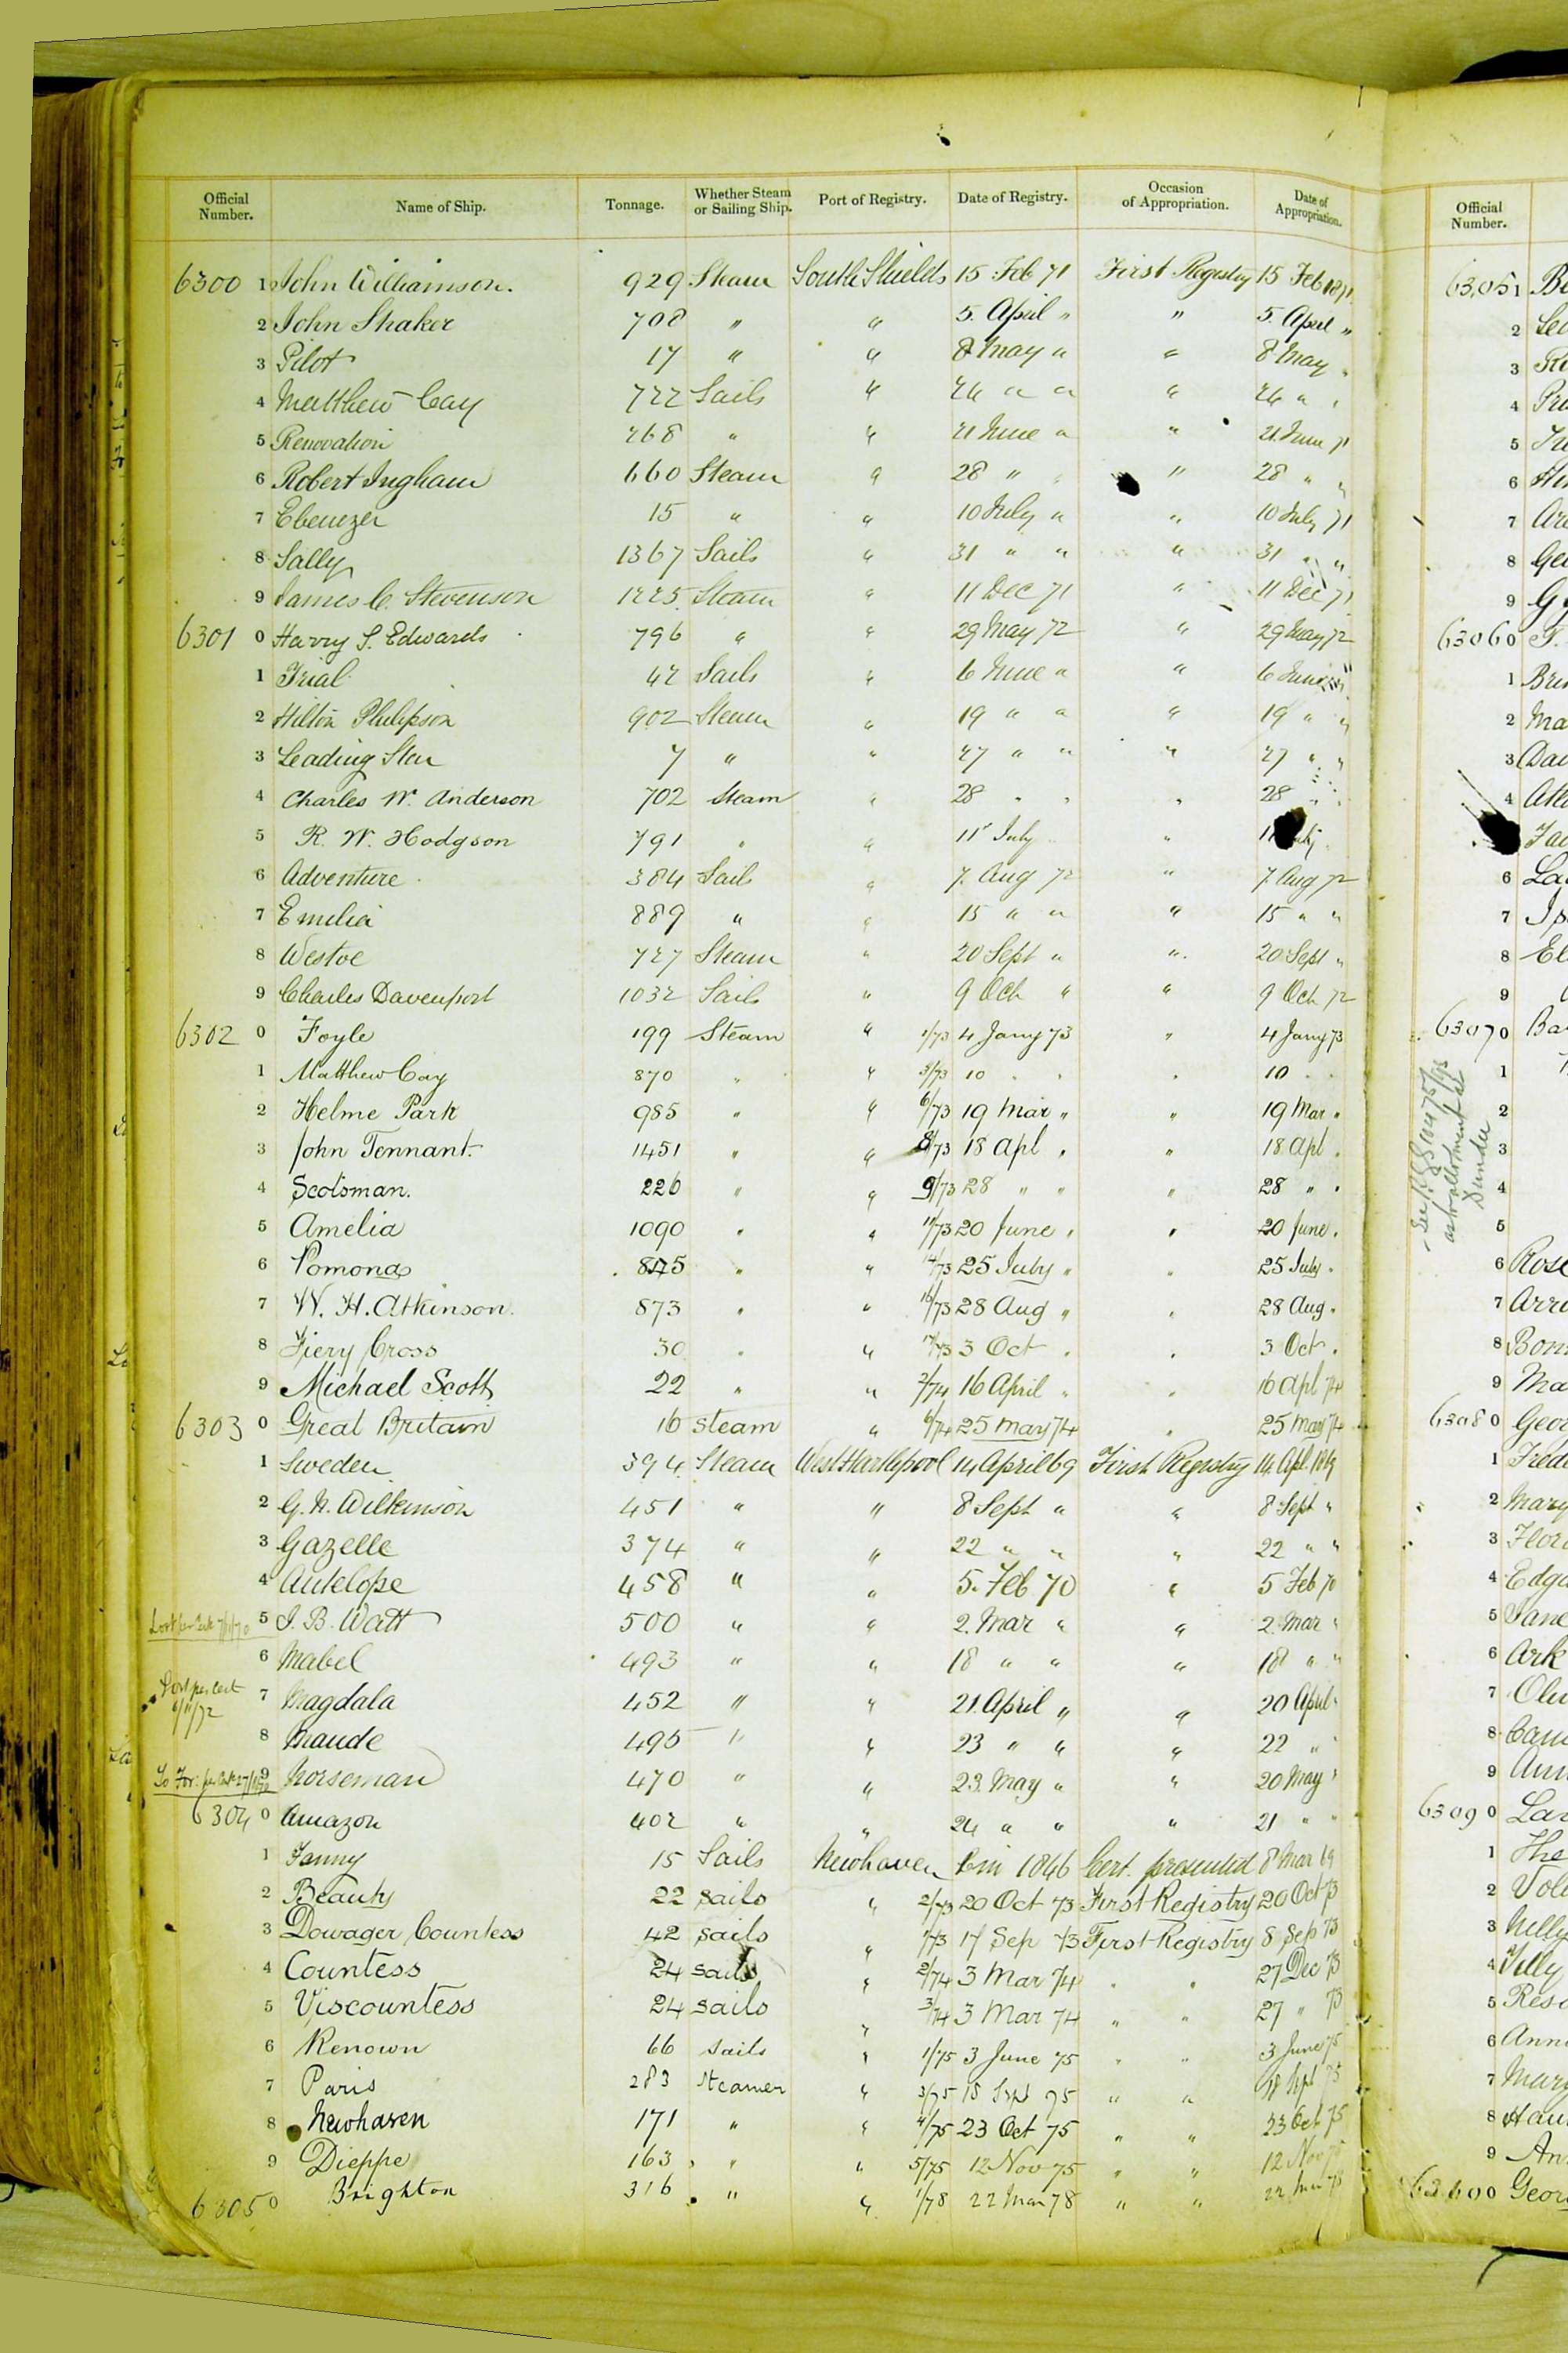 Official Number. Name of Ship. Tonnage. Whether Steam or Sailing Ship. Port of Registry. Date of Registry. Occasion of Appropriation. Date of Appropriation. Official Number.
6300 1 John Williamson. 929 Steam South Shields 15 Feb 71 First Registry 15 Feb 1871
2 John Shaker 708 " " 5. April " " 5. April "
3 Pilot 17 " " 8 May " " 8 May "
4 Matthew Cay 722 Sails " 24 " " " 24 " "
5 Renovation 268 " " 21 June " " 21. June 71
6 Robert Ingham 660 Steam " 28 " " " 28 " "
7 Ebenezer 15 " " 10 July " " 10 July 71
8 Sally 1367 Sails " 31 " " " 31 " "
9 James C. Stevenson 1225 Steam " 11 Dec 71 " 11 Dec 71
6301 0 Harry S. Edwards 796 " " 29 May 72 " 29 May 72
1 Trial 42 Sails " 6 June " " 6 June "
2 Hilton Philipson 902 Steam " 19 " " " 19 " "
3 Leading Star 7 " " 27 " " " 27 " "
4 Charles W. Anderson 702 Steam " 28 " " " 28 " "
5 R. W. Hodgson 791 " " 11 July " 11 July
6 Adventure 384 Sails " 7. Aug 72 " 7 Aug 72
7 Emilia 889 " " 15 " " " 15 " "
8 Westoe 727 Steam " 20 Sept " " 20 Sept "
9 Charles Davenport 1032 Sails " 9 Oct " " 9 Oct 72
6302 0 Foyle 199 Steam " 1/73 4 Jany 73 " 4 Jany 73
1 Matthew Cay 870 " " 3/73 10 " " " 10 " "
2 Helme Park 985 " " 6/73 19 Mar " " 19 Mar "
3 John Tennant. 1451 " " 8/73 18 Apl " " 18 Apl "
4 Scotsman. 226 " " 9/73 28 " " " 28 " "
5 Amelia 1090 " " 11/73 20 June " " 20 June "
6 Pomona 845 " " 14/73 25 July " " 25 July "
7 W. H. Atkinson. 873 " " 16/73 28 Aug " " 28 Aug "
8 Fiery Cross 30 " " 17/73 3 Oct " " 3 Oct "
9 Michael Scott 22 " " 2/74 16 April " " 16 Apl 74
6303 0 Great Britain 16 steam " 6/74 25 May 74 " 25 May 74
1 Sweden 394 Steam West Hartlepool 14 April 69 First Registry 14. Apl. 1869
2 G. N. Wilkinson 451 " " 8 Sept " " 8 Sept "
3 Gazelle 374 " " 22 " " " 22 " "
4 Antelope 458 " " 5. Feb 70 " 5 Feb 70
5 J. B. Watt 500 " " 2. Mar " " 2. Mar "
6 Mabel 493 " " 18 " " " 18 " "
Lost per cert 6/11/72 7 Magdala 452 " " 21 April " " 20 April "
8 Maude 495 " " 23 " " " 22 "
9 Norseman 470 " " 23. May " " 20 May "
6304 0 Amazon 402 " " 24 " " " 21 " "
1 Fanny 15 Sails Newhaven 1846 Cert. presented 8 Mar 69
2 Beauty 22 sails " 2/73 20 Oct 73 First Registry 20 Oct 73
3 Dowager Countess 42 sails " 1/73 17 Sep 73 First Registry 8 Sep 73
4 Countess 24 sails " 2/74 3 Mar 74 " " 27 Dec 73
5 Viscountess 24 sails " 3/74 3 Mar 74 " " 27 " 73
6 Renown 66 sails " 1/75 3 June 75 " " 3 June 75
7 Paris 283 Steamer " 3/75 18 Sept 75 " " 18 Sept 75
8 Newhaven 171 " " 4/75 23 Oct 75 " " 23 Oct 75
9 Dieppe 163 " " 5/75 12 Nov 75 " " 12 Nov 75
6305 0 Brighton 316 " " 1/78 22 Mar 78 " " 22 Mar 78
63051
2
3
4
5
6
7
8
9
63060
1
2
3
4
6
7
8
9
63070
1
2
3
4
5
6 Rose
7
8
9
63080
1
2 Mary
3
4
5 Jane
6 Ark
7
8
9
63090
1 The
2
3 Nelly
4
5
6
7 Mary
8
9